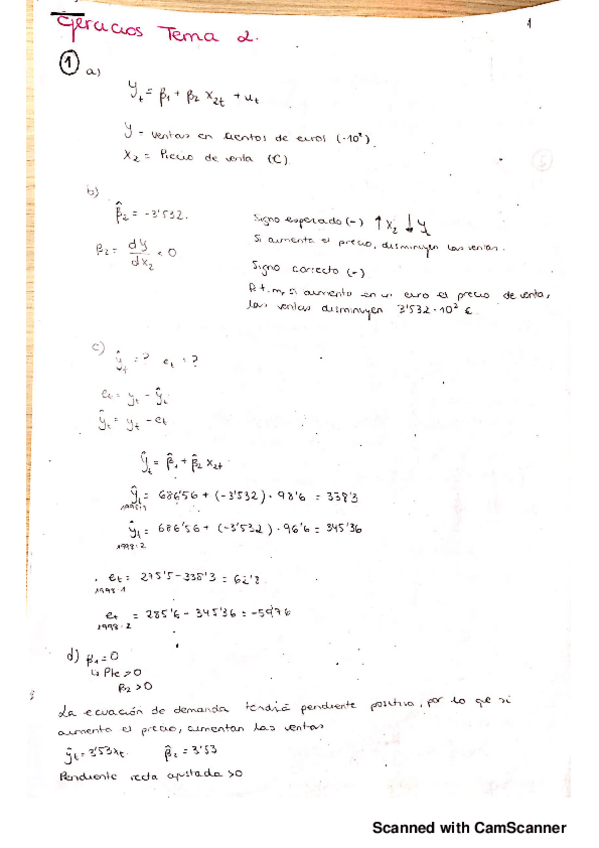 Ejercicios Tema 2.
1
① a)
Yt = β1 + β2 X2t + ut
Y = ventas en cientos de euros (·10²)
X2 = Precio de venta (€)
b)
β̂2 = -3'532. Signo esperado (-) ↑X2 ↓Y
Si aumenta el precio, disminuyen las ventas.
β2 = dY/dX2 < 0
Signo correcto (-)
P.t.m, si aumento en un euro el precio de venta,
las ventas disminuyen 3'532·10² €
c) ŷt = ? et = ?
et = yt - ŷt
ŷt = yt - et
ŷt = β̂1 + β̂2 X2t
ŷt = 686'56 + (-3'532) · 98'6 = 338'3
1998·1
ŷt = 686'56 + (-3'532) · 96'6 = 345'36
1998·2
et = 275'5 - 338'3 = 62'8
1998·1
et = 285'6 - 345'36 = -59'76
1998·2
d) β1 = 0
↳ Pte > 0
β2 > 0
La ecuación de demanda tendrá pendiente positiva, por lo que si
aumenta el precio, aumentan las ventas
ŷt = 3'53xt β̂2 = 3'53
Pendiente recta ajustada > 0
Scanned with CamScanner